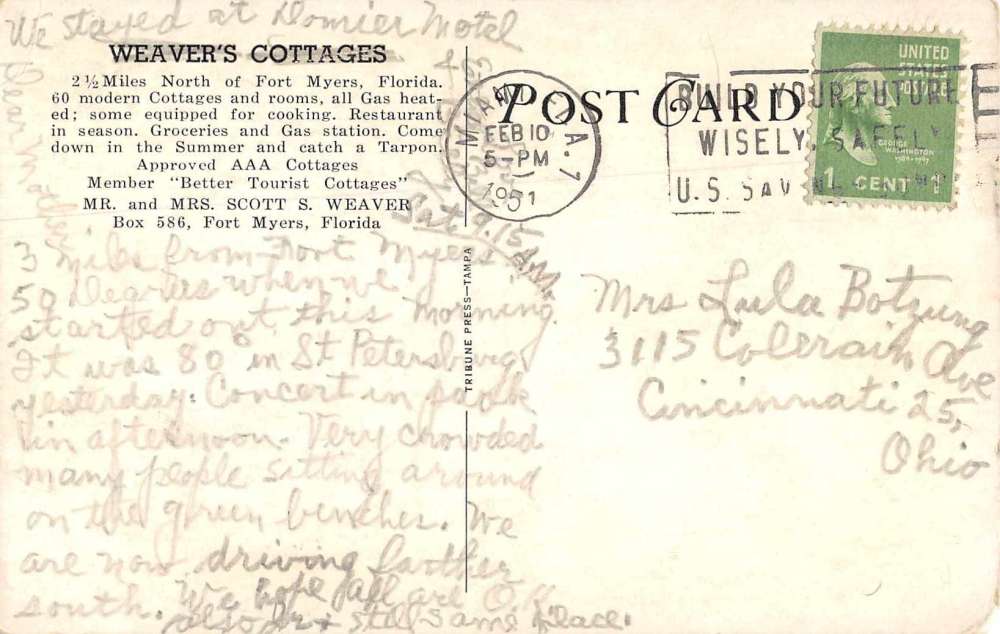 We stayed at Domier Motel
WEAVER'S COTTAGES
2½ Miles North of Fort Myers, Florida.
60 modern Cottages and rooms, all Gas heat-
ed; some equipped for cooking. Restaurant
in season. Groceries and Gas station. Come
down in the Summer and catch a Tarpon.
Approved AAA Cottages
Member "Better Tourist Cottages"
MR. and MRS. SCOTT S. WEAVER
Box 586, Fort Myers, Florida
Dear Mother
Sat. 9.15 A.M.
3 miles from Fort Myers
50 Degrees when we
started out this morning.
It was 80° in St Petersburg
yesterday. Concert in park
in afternoon. Very crowded
many people sitting around
on the green benches. We
are now driving farther
south. We hope all are O.K.
also + still same place.
TRIBUNE PRESS—TAMPA
POST CARD
MIAMI, FLA. 7
FEB 10
5-PM
1951
BUILD YOUR FUTURE
WISELY, SAFELY
U.S. SAVINGS
UNITED
STATES
POSTAGE
GEORGE
WASHINGTON
1789-1797
1 CENT 1
Mrs Lula Botzung
3115 Colerain Ave
Cincinnati 25,
Ohio